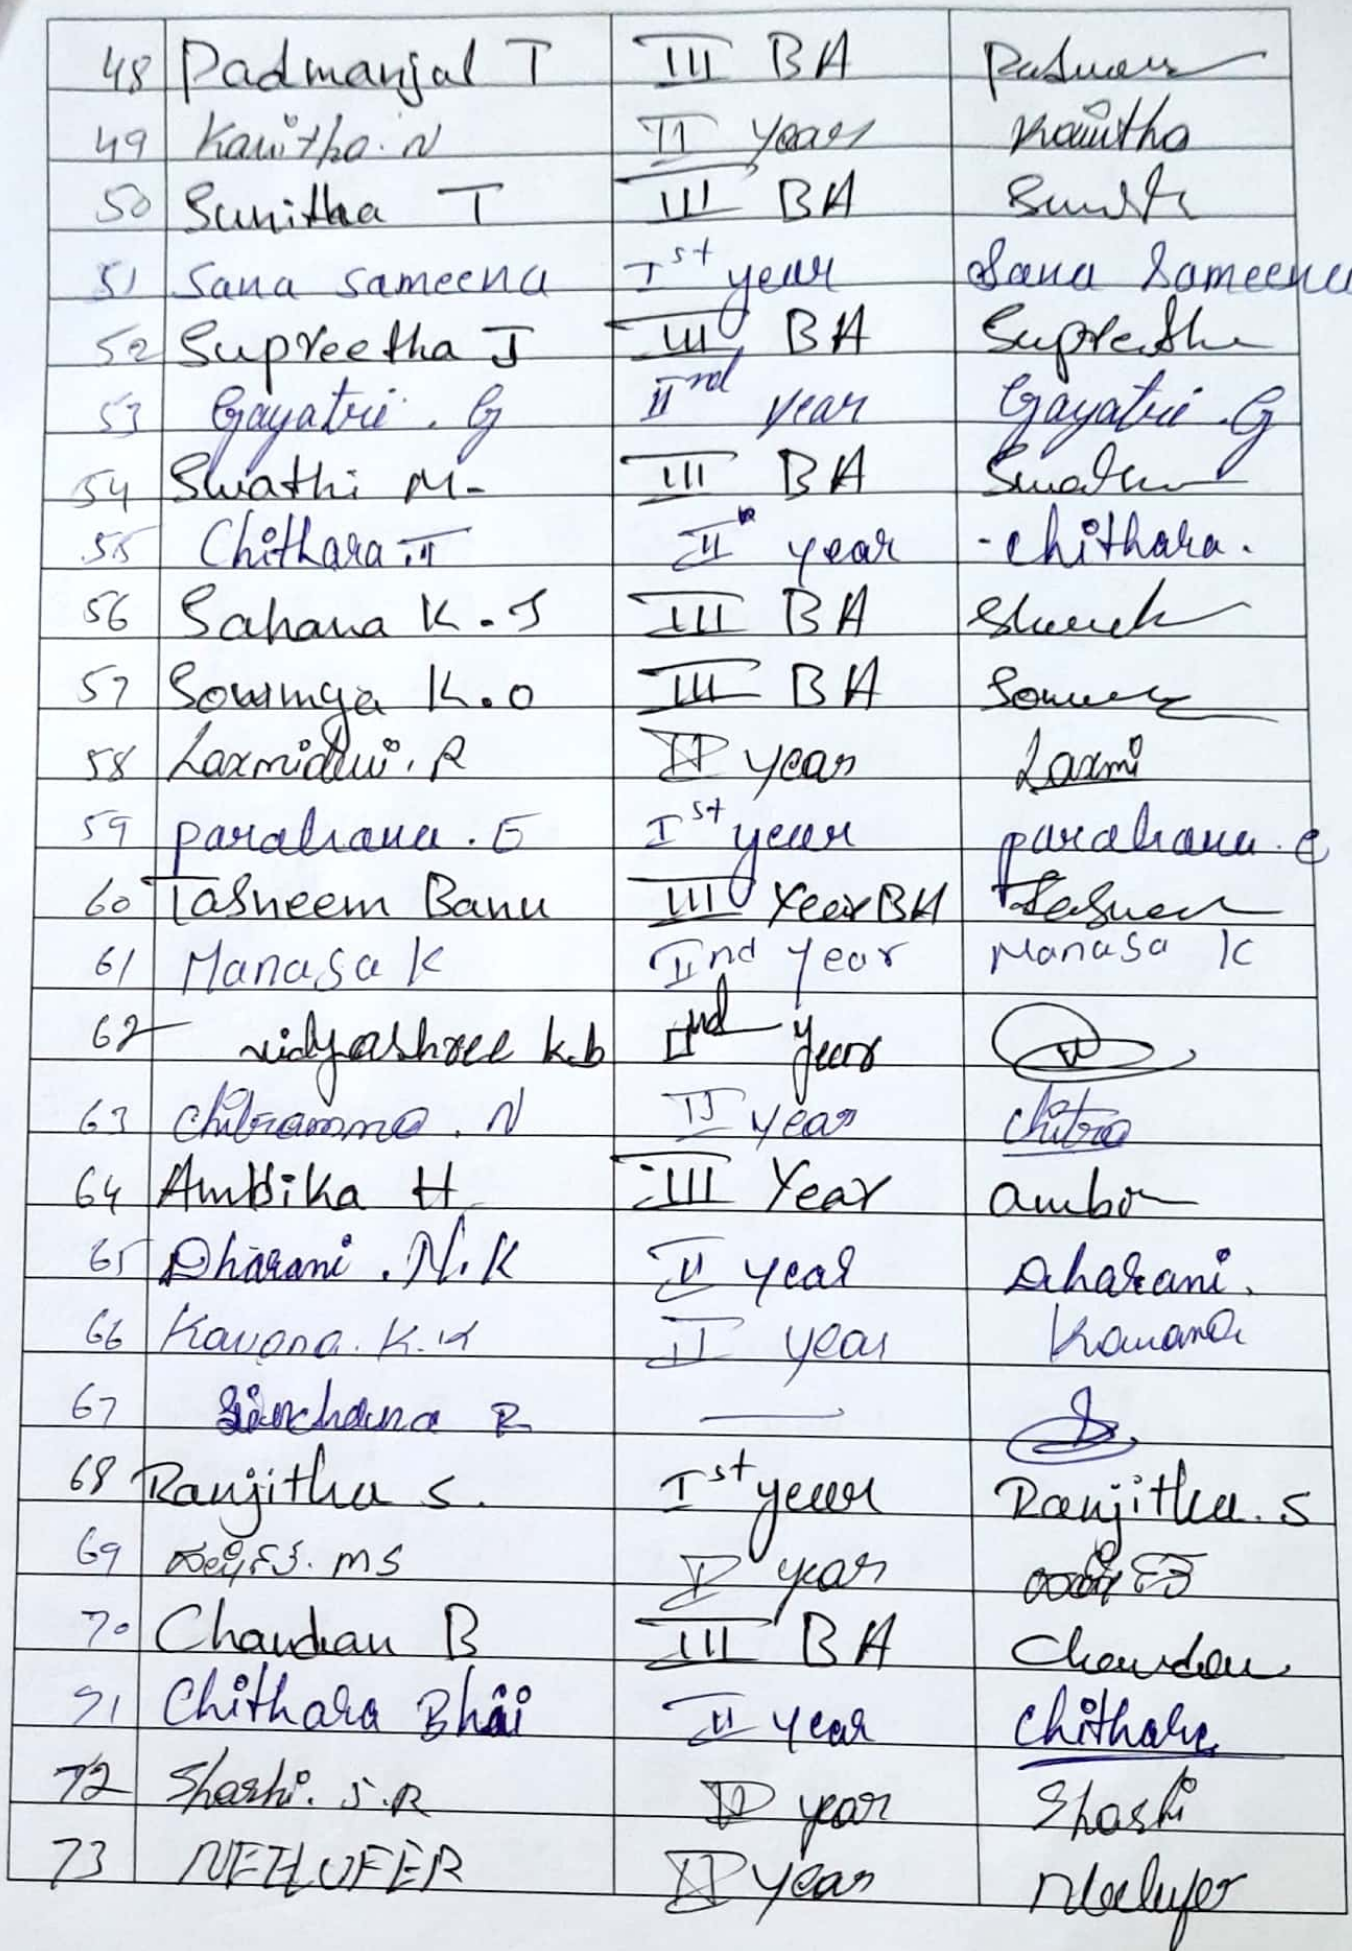 48 Padmanjal T III BA
49 Kavitha. N II year Kavitha
50 Sunitha T III BA
51 Sana Sameena Ist year Sana Sameena
52 Supreetha J III BA Supreetha
53 Gayatri . G IInd year Gayatri . G
54 Swathi M- III BA
55 Chithara . T II year - Chithara .
56 Sahana K . J III BA
57 Sowmya K.O III BA
58 Laxmidevi . R II year Laxmi
59 parahana . E Ist year parahana . E
60 Tasneem Banu III Year BA
61 Manasa K IInd year Manasa K
62 vidyashree k.b IInd year
63 Chitramma . N II year Chitra
64 Ambika H III Year
65 Dharani . N.K II year Dharani .
66 Kavana. K.K II year Kavana
67 Sinchana R —
68 Ranjitha S. Ist year Ranjitha . S
69 MS year
70 Chandan B III BA Chandan
71 Chithara Bhai II year Chithara
72 Shashi. S.R II year Shashi
73 NEELUFER II year Neelufer